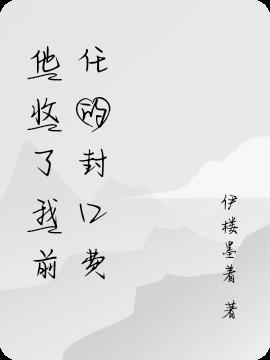 他收了我前
任的封口费
伊楼墨着 著